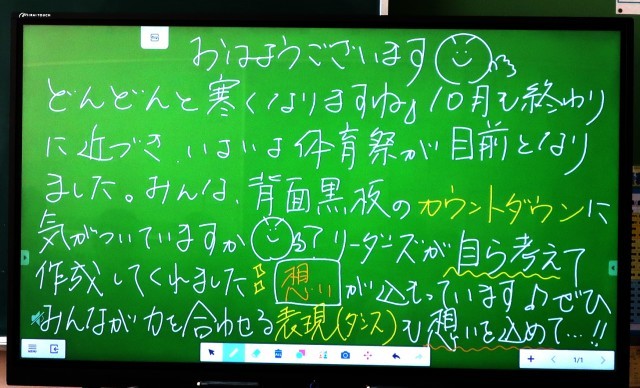 おはようございます
どんどんと寒くなりますね。10月も終わり
に近づき、いよいよ体育祭が目前となり
ました。みんな、背面黒板のカウントダウンに
気がついていますか リーダーズが自ら考えて
作成してくれました!! 想いが込もっています♪ ぜひ
みんなが力を合わせる表現(ダンス)も想いを込めて…!!
1/1